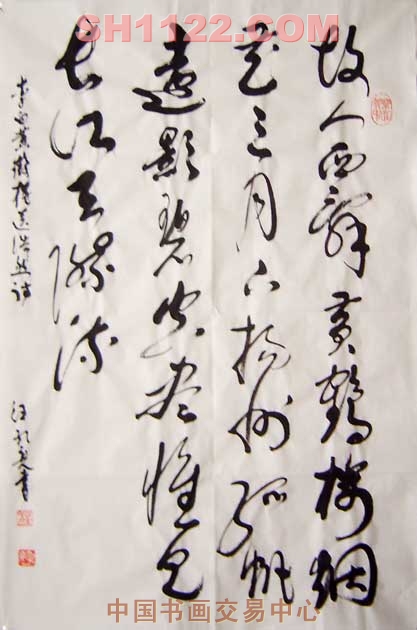 SH1122.COM
故人西辭黄鶴樓烟
花三月下揚州孤帆
遠影碧空盡惟見
長江天際流
李白黄鶴樓送浩然詩
汪 書
中国书画交易中心